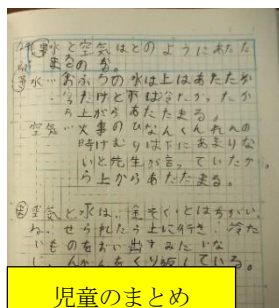 水と空気はどのようにあたた
まるのか。
水…おふろの水は上はあたたか
ら上からあたたまる。
空気…火事のひなんくんれんの
時けむりは下にあまりな
いと先生が言っていたか
ら上からあたたまる。
空気と水は、金ぞくとはちがい、
せられたら上に行き、冷た
いものをおい出すみたいな
をくり返している。
児童のまとめ